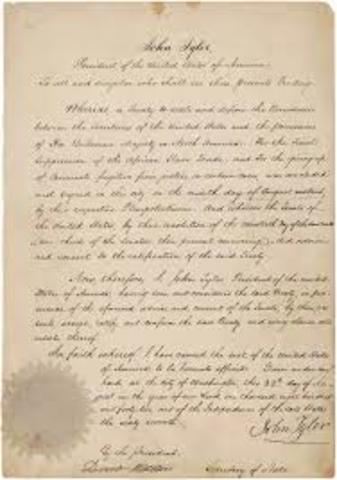 John Tyler
President of the United States of America
To all and singular who shall see these Presents Greeting
Whereas, a Treaty to settle and define the Boundaries
between the territories of the United States and the possessions
of Her Britannic Majesty in North America: For the final
Suppression of the African Slave Trade: and For the giving up
of Criminals fugitive from justice, in certain cases, was concluded
and signed in this city on the ninth day of August instant,
by their respective Plenipotentiaries. And whereas the Senate of
the United States, by their resolution of the twentieth day of
of the Senators then present concurring, did advise
and consent to the ratification of the said Treaty
Now therefore, I, John Tyler President of the United
States of America, having seen and considered the said Treaty, in pursuance
of the aforesaid advice and consent of the Senate, by these
accept, ratify, and confirm the said Treaty and every clause and
article thereof
In faith whereof, I have caused the seal of the United States
of America to be hereunto affixed. Given under my
hand at the City of Washington this 22nd day of
in the year of our Lord one thousand eight hundred
and forty two, and of the Independence of the said States
the sixty seventh
John Tyler
By the President
Secretary of State